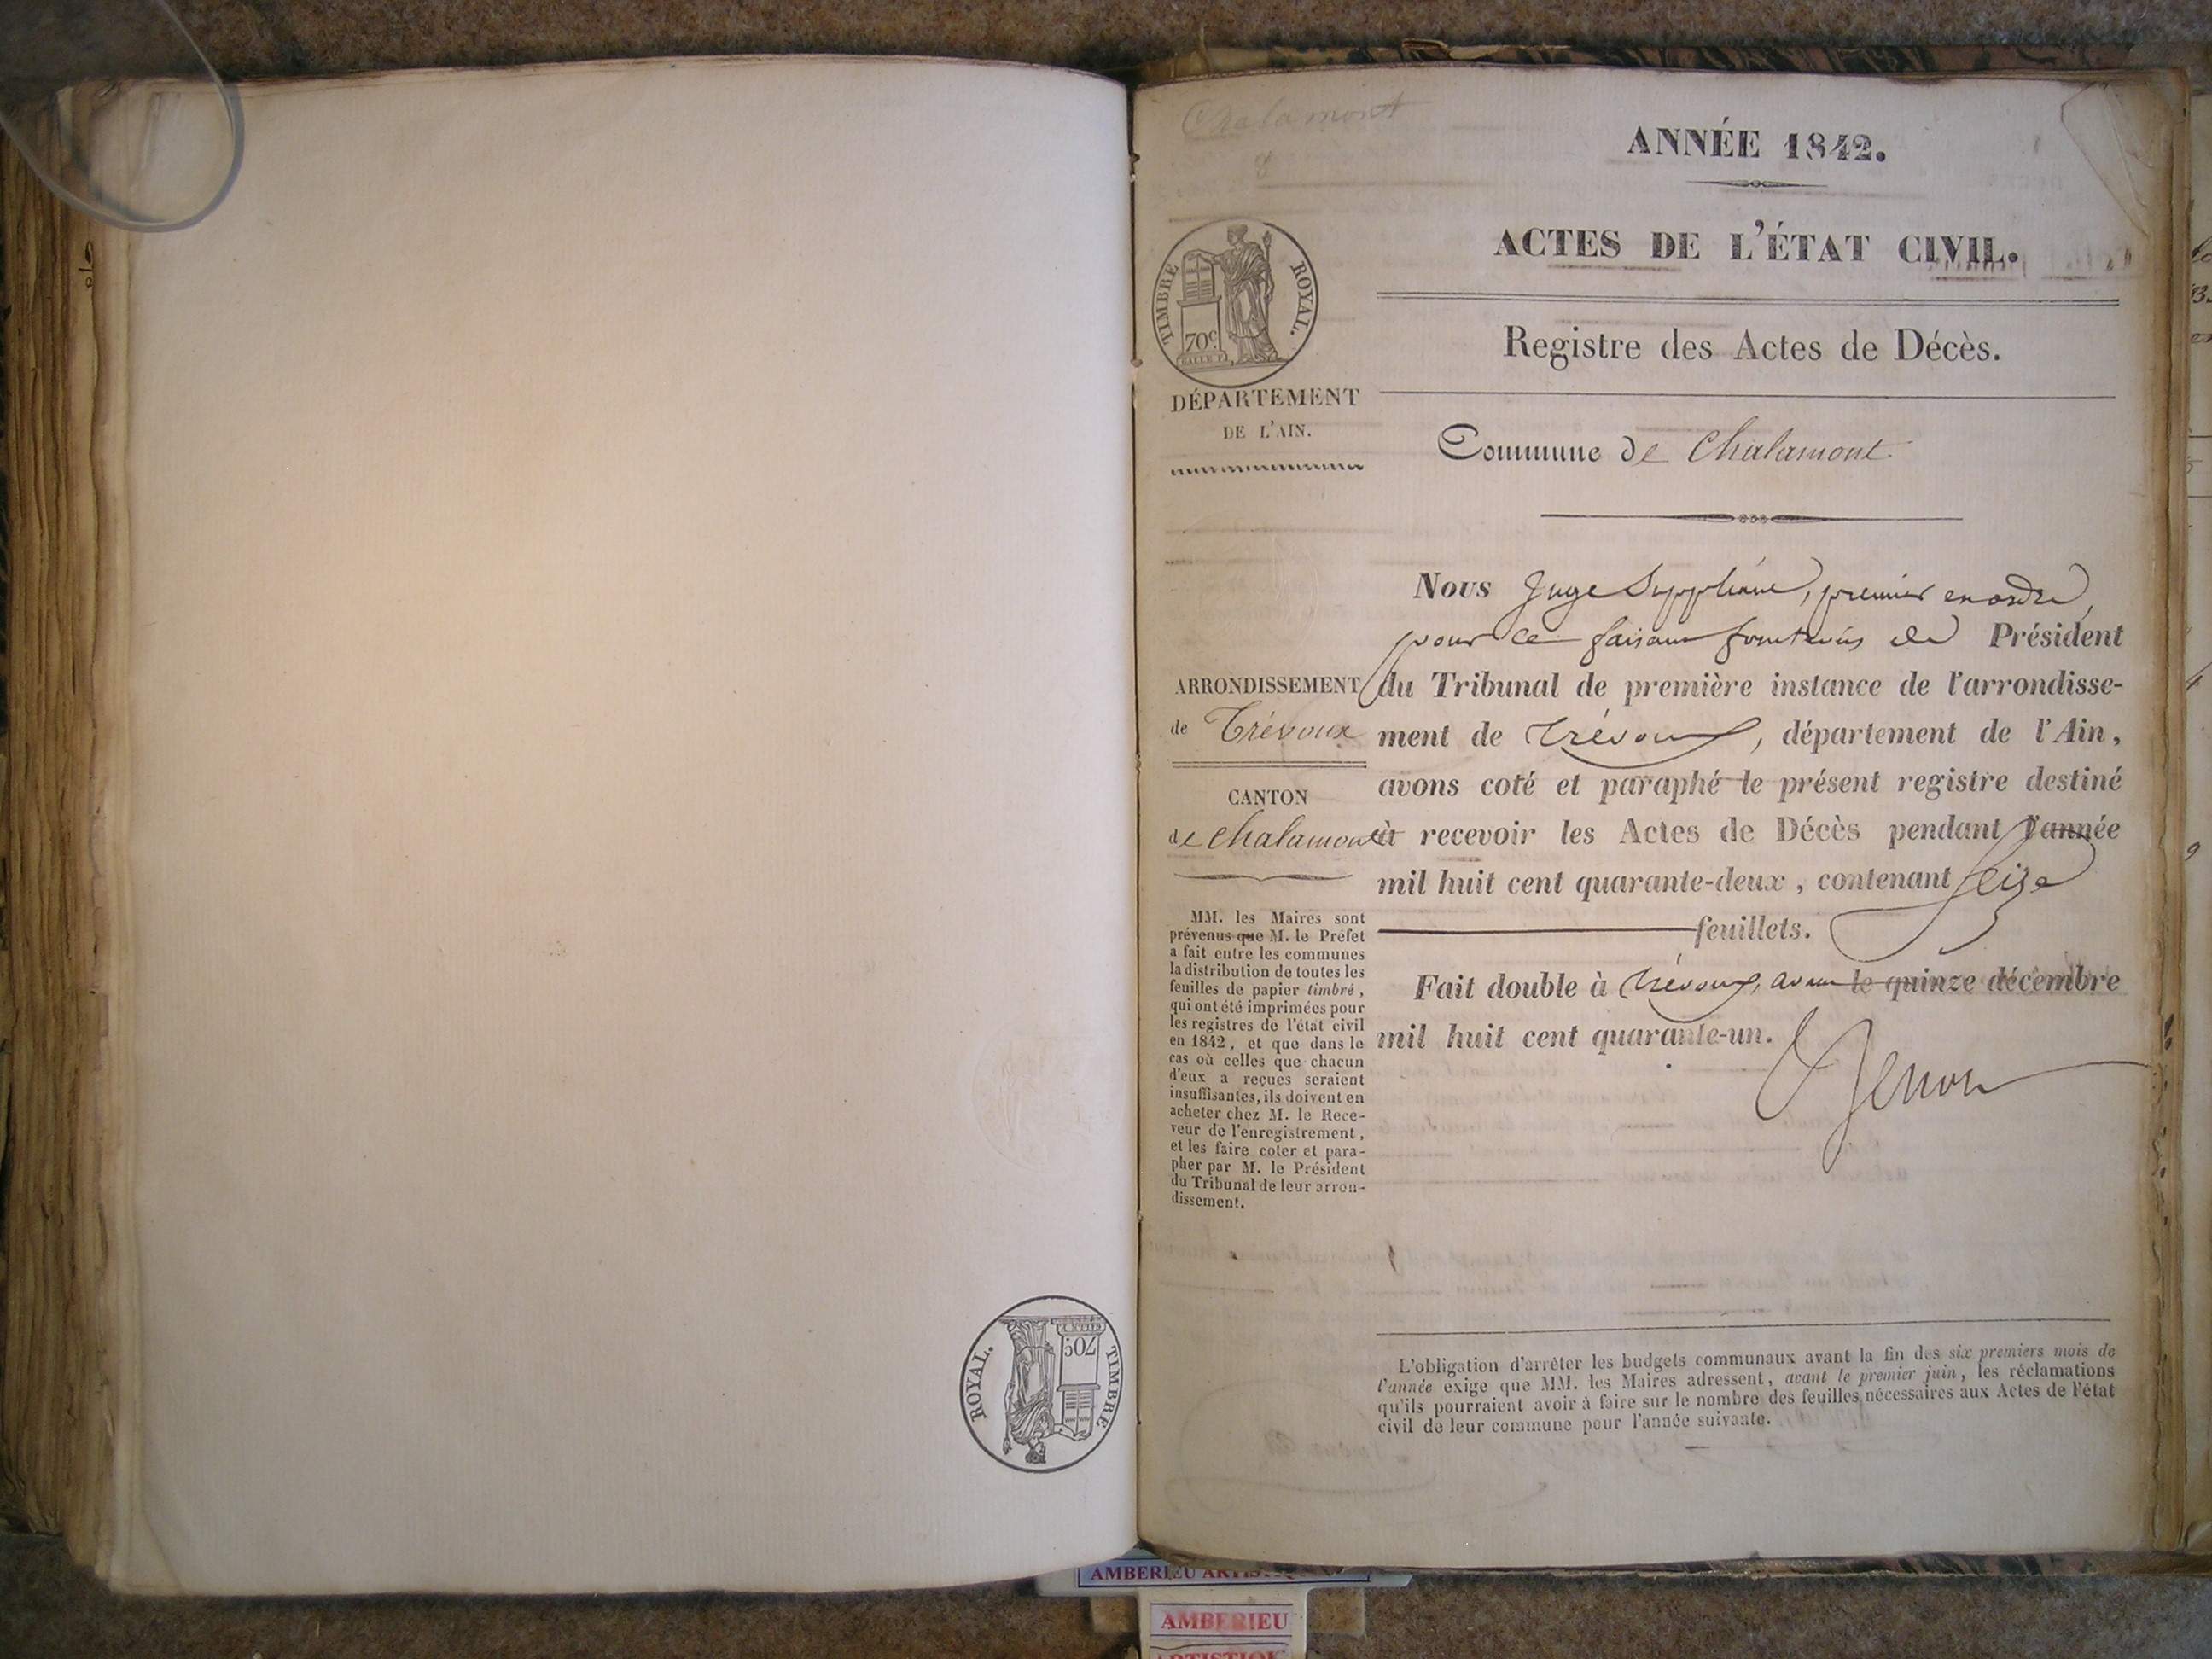 Chalamont
8
ANNÉE 1842.
ACTES DE L'ÉTAT CIVIL.
Registre des Actes de Décès.
TIMBRE ROYAL.
70c
DÉPARTEMENT
DE L'AIN.
Commune de Chalamont
Nous Juge Suppléant, premier en ordre,
pour ce faisant fonctions de Président
du Tribunal de première instance de l'arrondisse-
ment de Trévoux, département de l'Ain,
avons coté et paraphé le présent registre destiné
à recevoir les Actes de Décès pendant l'année
mil huit cent quarante-deux, contenant seize
feuillets.
Fait double à Trévoux, avant le quinze décembre
mil huit cent quarante-un.
ARRONDISSEMENT
de Trévoux
CANTON
de Chalamont
MM. les Maires sont
prévenus que M. le Préfet
a fait entre les communes
la distribution de toutes les
feuilles de papier timbré,
qui ont été imprimées pour
les registres de l'état civil
en 1842, et que dans le
cas où celles que chacun
d'eux a reçues seraient
insuffisantes, ils doivent en
acheter chez M. le Rece-
veur de l'enregistrement,
et les faire coter et para-
pher par M. le Président
du Tribunal de leur arron-
dissement.
L'obligation d'arrêter les budgets communaux avant la fin des six premiers mois de
l'année exige que MM. les Maires adressent, avant le premier juin, les réclamations
qu'ils pourraient avoir à faire sur le nombre des feuilles nécessaires aux Actes de l'état
civil de leur commune pour l'année suivante.
TIMBRE ROYAL.
70c
AMBERIEU
AMBERIEU